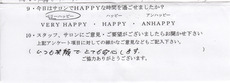 9・今日はサロンでHAPPYな時間を過ごせましたか？
ベリーハッピー　ハッピー　アンハッピー
VERY HAPPY・HAPPY・ANHAPPY
10・スタッフ、サロンにご意見・ご要望がございましたらお聞かせ下さい
上記アンケート項目に対しての細かなご意見などもご記入下さい。
いつも笑顔で とても安心します。
ご協力ありがとうございます。